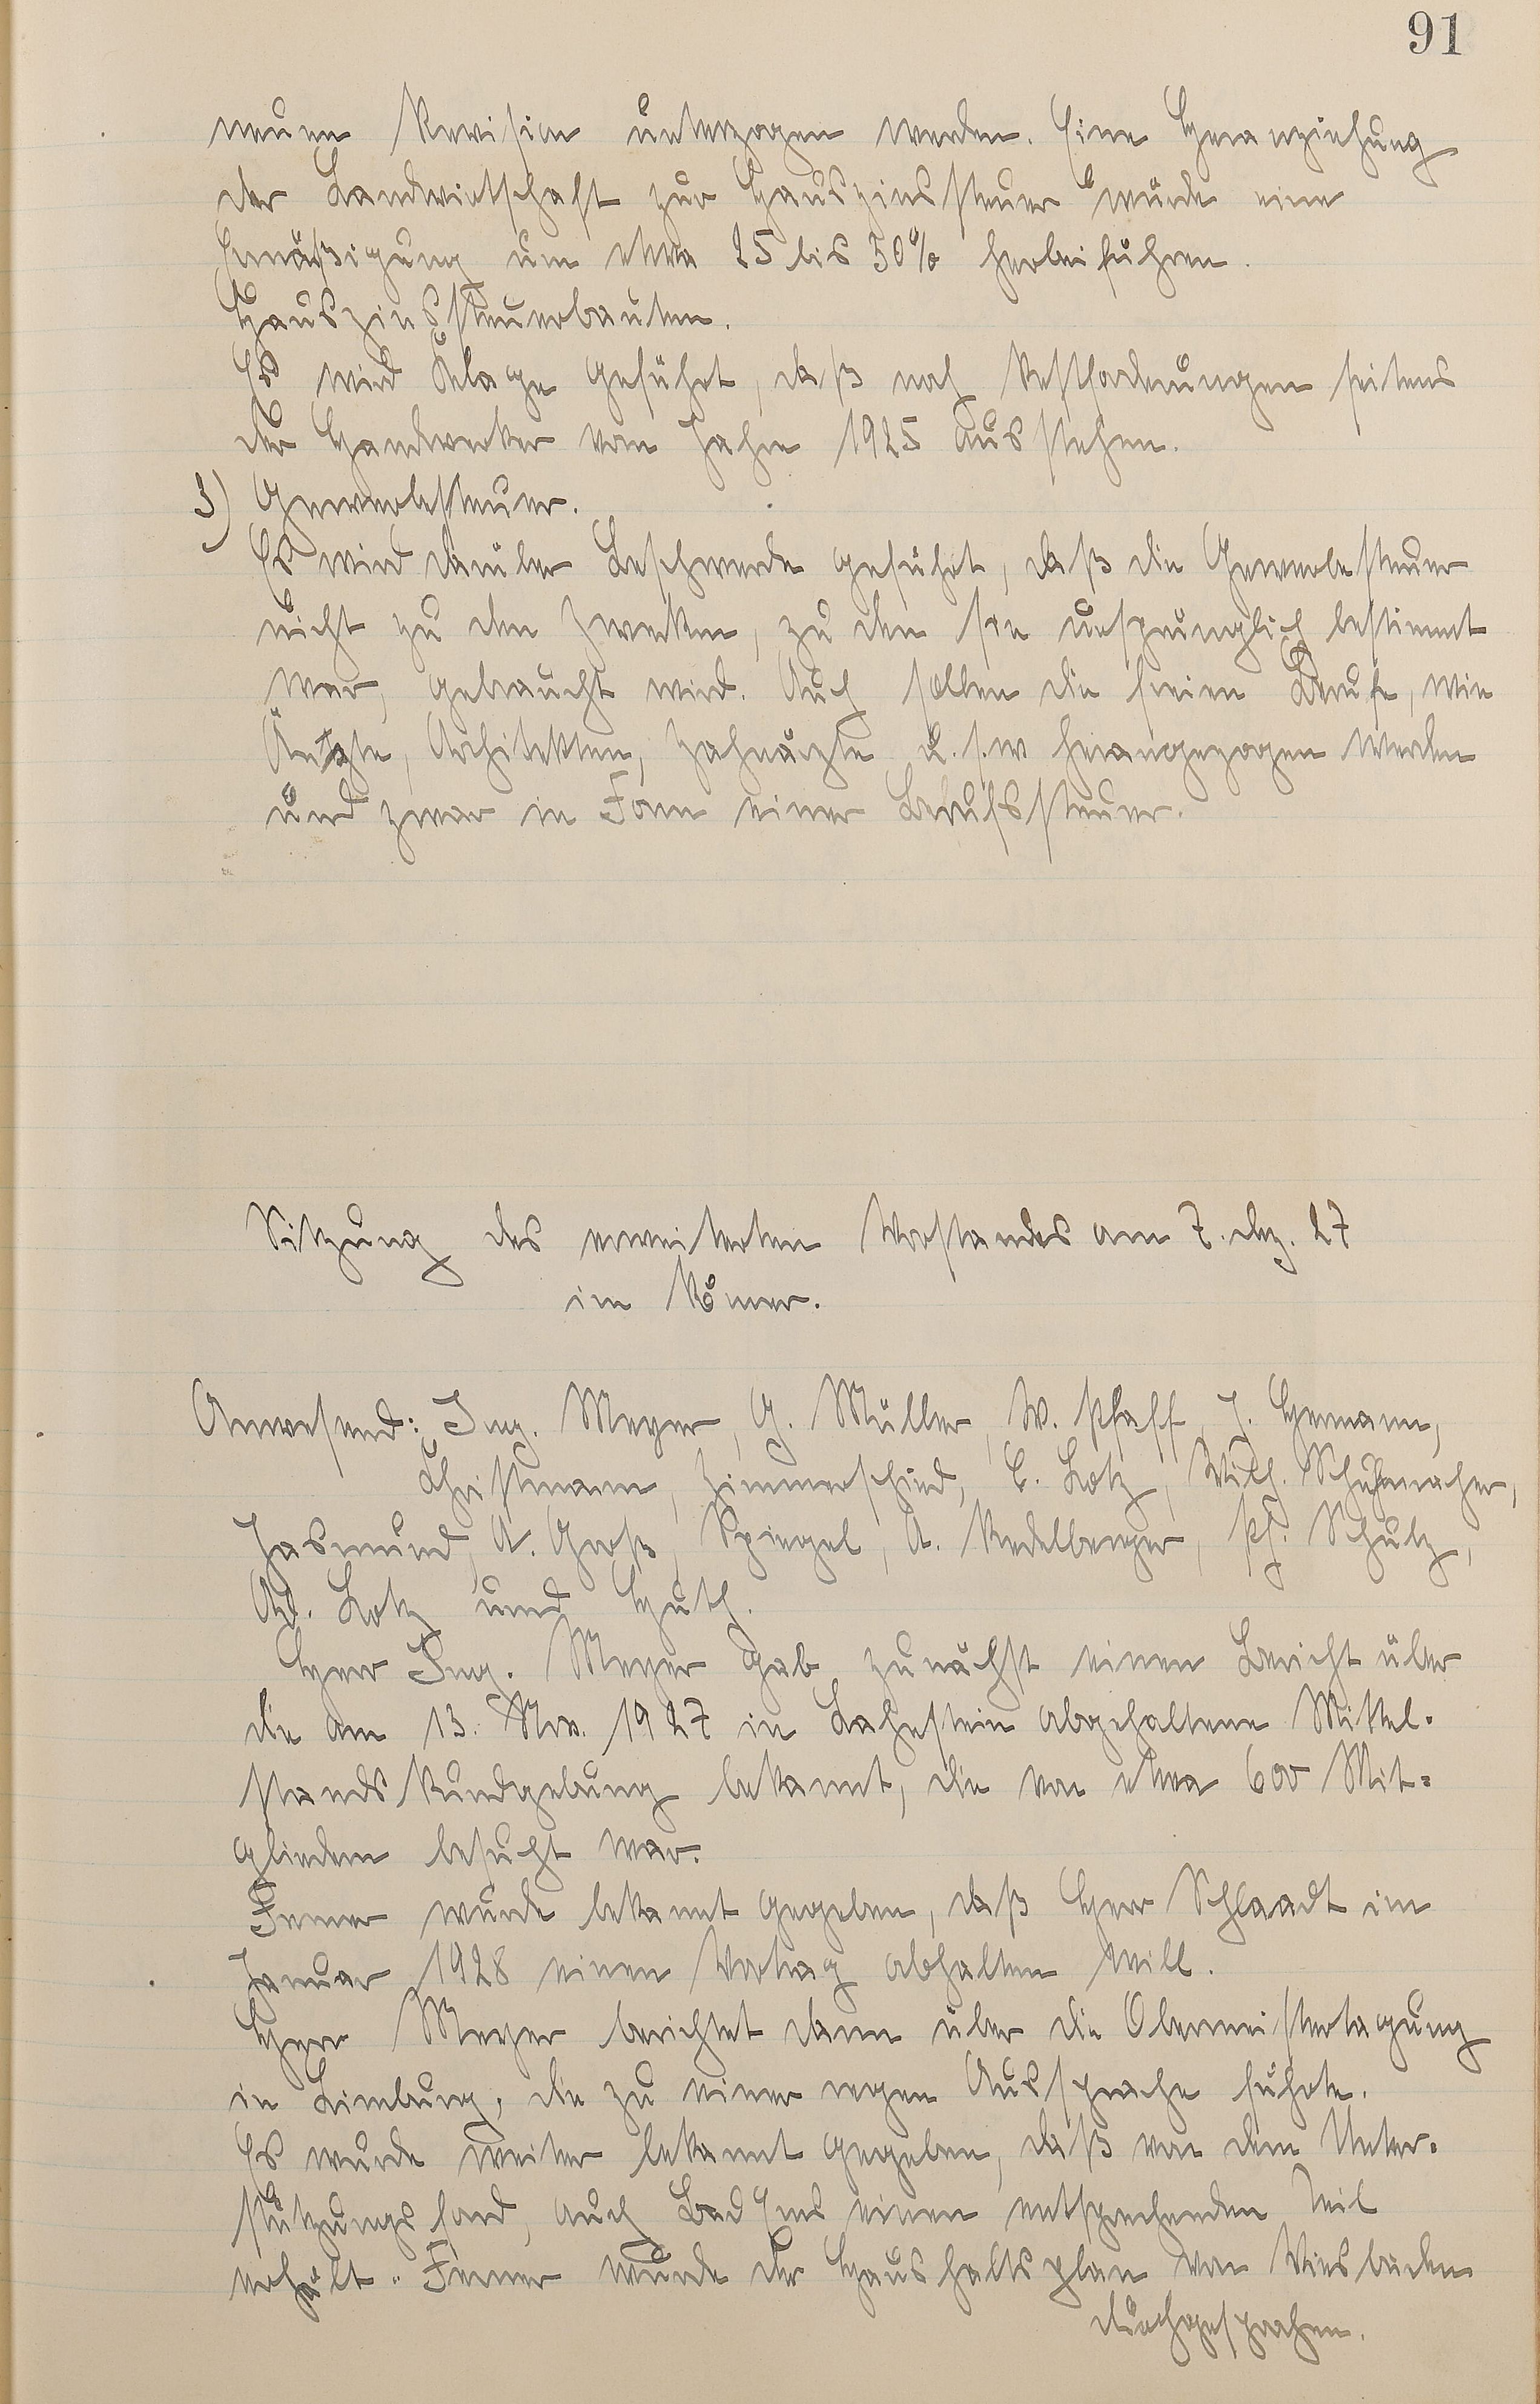 91
neuen Revision unterzogen werden. Eine Heranziehung
der Landwirtschaft zur Hauszinssteuer würde eine
Ermäßigung um etwa 25 bis 30% herbeiführen.
Hauszinssteuerbauten.
Es wird Klage geführt, daß noch Restforderungen seitens
der Handwerker vom Jahre 1925 ausstehen.
3) Gewerbesteuer.
Es wird darüber Beschwerde geführt, daß die Gewerbesteuer
nicht zu den Zwecken, zu den sie ursprünglich bestimmt
war, gebraucht wird. Auch sollen die freien Berufe, wie
Ärtzte, Architekten, Zahnärzte u.s.w herangezogen werden
und zwar in Form einer Berufssteuer.
Sitzung des erweiterten Vorstandes am 7. Dez. 27
im Römer.
Anwesend: Ing. Meyer, G. Müller, W. Pfaff, J. Hermann,
Christmann, Zimmerschied, C. Lotz, Wilh. Schuhmacher,
Jasmund, A. Groß, Spiegel, A. Redelberger, Ph. Schulz,
Ad. Lotz und Huth.
Herr Ing. Meyer gab zunächst einen Bericht über
die am 13. Nov. 1927 in Lahnstein abgehaltene Mittel-
standskundgebung bekannt, die von etwa 600 Mit-
gliedern besucht war.
Ferner wurde bekannt gegeben, daß Herr Schlaadt im
Januar 1928 einen Vortrag abhalten will.
Herr Meyer berichtet dann über die Obermeistertagung
in Limburg, die zu einer regen Aussprache führte.
Es wurde weiter bekannt gegeben, daß von dem Unter-
stützungsfond, auch Bad Ems einen entsprechenden Teil
erhält. Ferner wurde der Haushaltsplan von Wiesbaden
durchgesprochen.